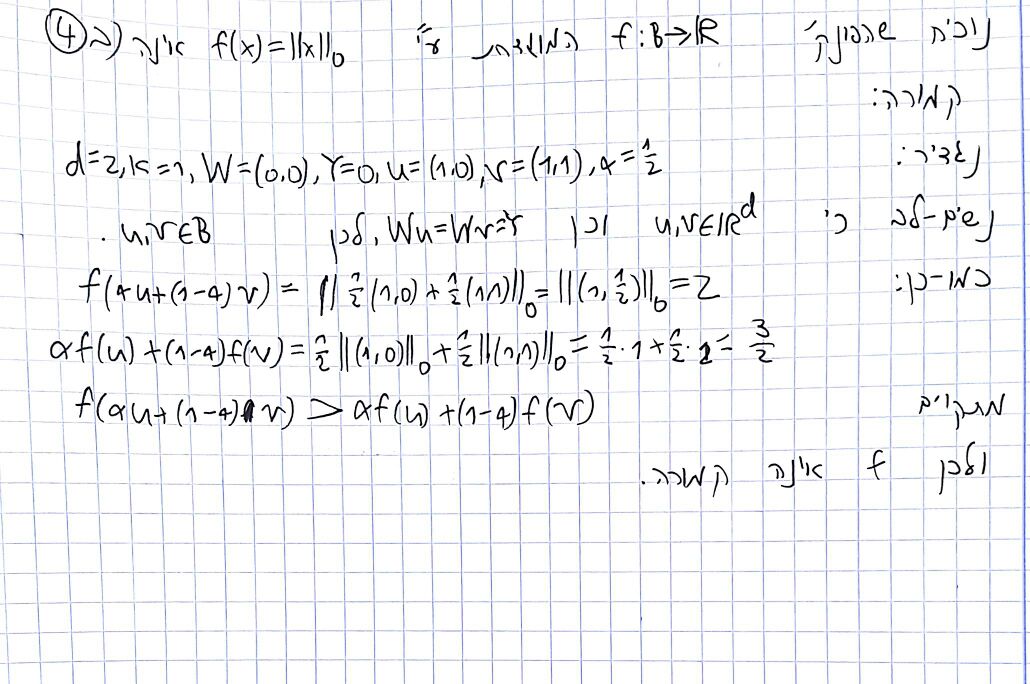 ④ ב) נוכיח שהפונק' f:B→ℝ המוגדרת ע"י f(x)=||x||₀ אינה
קמורה:
נגדיר: d=2, k=1, W=(0,0), Y=0, u=(1,0), v=(1,1), α=½
נשים-לב כי u,v∈ℝᵈ וכן Wu=Wv=Y, לכן u,v∈B.
כמו-כן: f(αu+(1-α)v) = ||½(1,0)+½(1,1)||₀=||(1,½)||₀=2
αf(u)+(1-α)f(v)=½||(1,0)||₀+½||(1,1)||₀=½·1+½·2=3/2
מתקיים f(αu+(1-α)v) > αf(u)+(1-α)f(v)
ולכן f אינה קמורה.